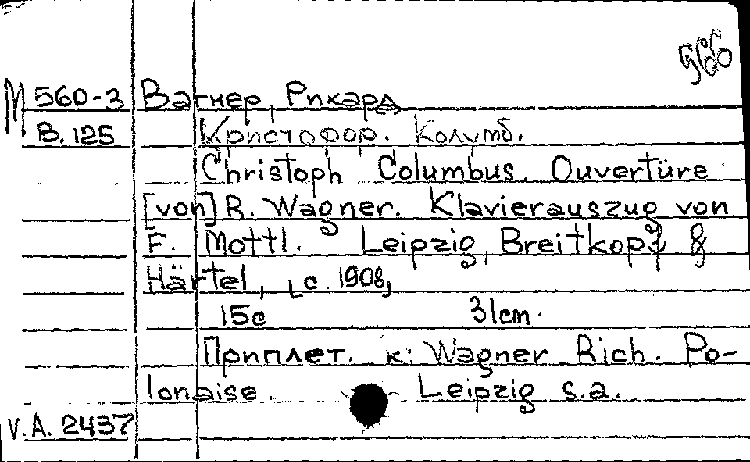 566
М 560-3 Вагнер, Рихард
В.125 Христофор. Колумб.
Christoph Columbus. Ouvertüre
[von] R. Wagner. Klavierauszug von
F. Mottl. Leipzig, Breitkopf &
Härtel, c. 1908,
15с 31cm.
Приплет. к: Wagner Rich. Po-
lonaise. Leipzig s.a.
V.A. 2437